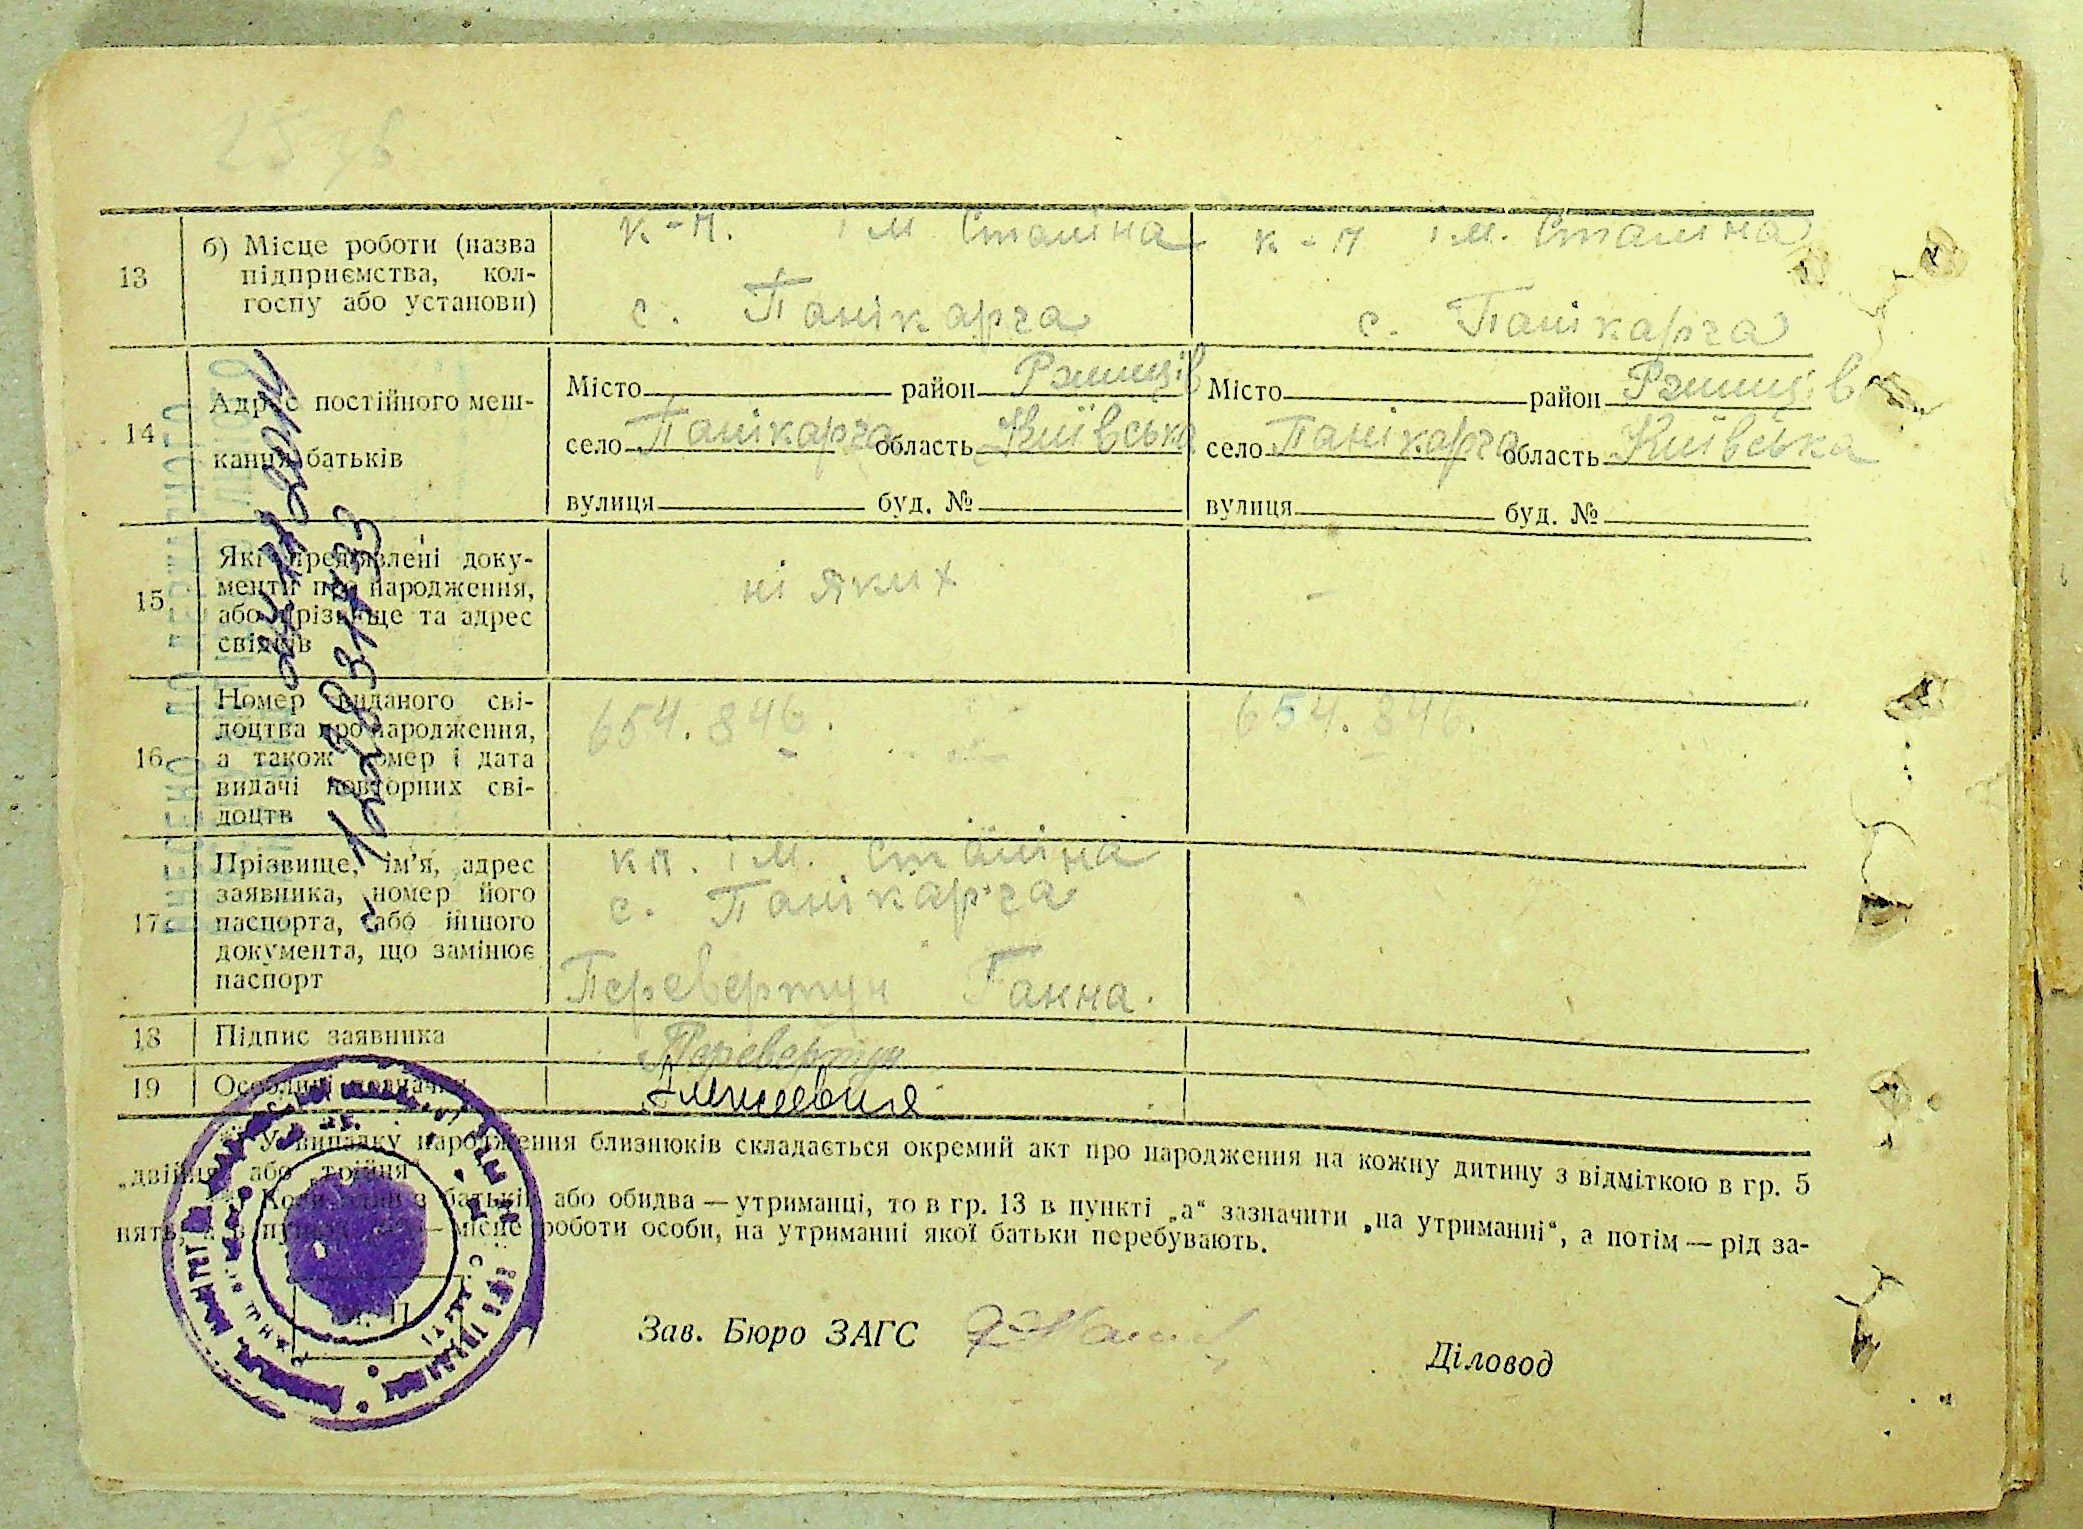 13
б) Місце роботи (назва
підприємства, кол-
госпу або установи)
к-п. ім Сталіна
с. Панікарча
к-п ім. Сталіна
с. Панікарча
14
Адрес постійного меш-
кання батьків
Місто район Ржищів
село Панікарча область Київська
вулиця буд. №
Місто район Ржищів
село Панікарча область Київська
вулиця буд. №
15
Які пред'явлені доку-
менти про народження,
або прізвище та адрес
свідків
ні яких
–
16
Номер виданого сві-
доцтва про народження,
а також номер і дата
видачі повторних сві-
доцтв
654.846.
654.846.
17
Прізвище, ім'я, адрес
заявника, номер його
паспорта, або іншого
документа, що замінює
паспорт
кп. ім. Сталіна
с. Панікарча
Перевертун Ганна.
18
Підпис заявника
Перевертун
19
Особливі зазначки
У випадку народження близнюків складається окремий акт про народження на кожну дитину з відміткою в гр. 5
„двійня“ або „трійня“
Коли один з батьків або обидва — утриманці, то в гр. 13 в пункті „а“ зазначити „на утриманні“, а потім — рід за-
нять, а в пункті — місце роботи особи, на утриманні якої батьки перебувають.
Зав. Бюро ЗАГС
Діловод